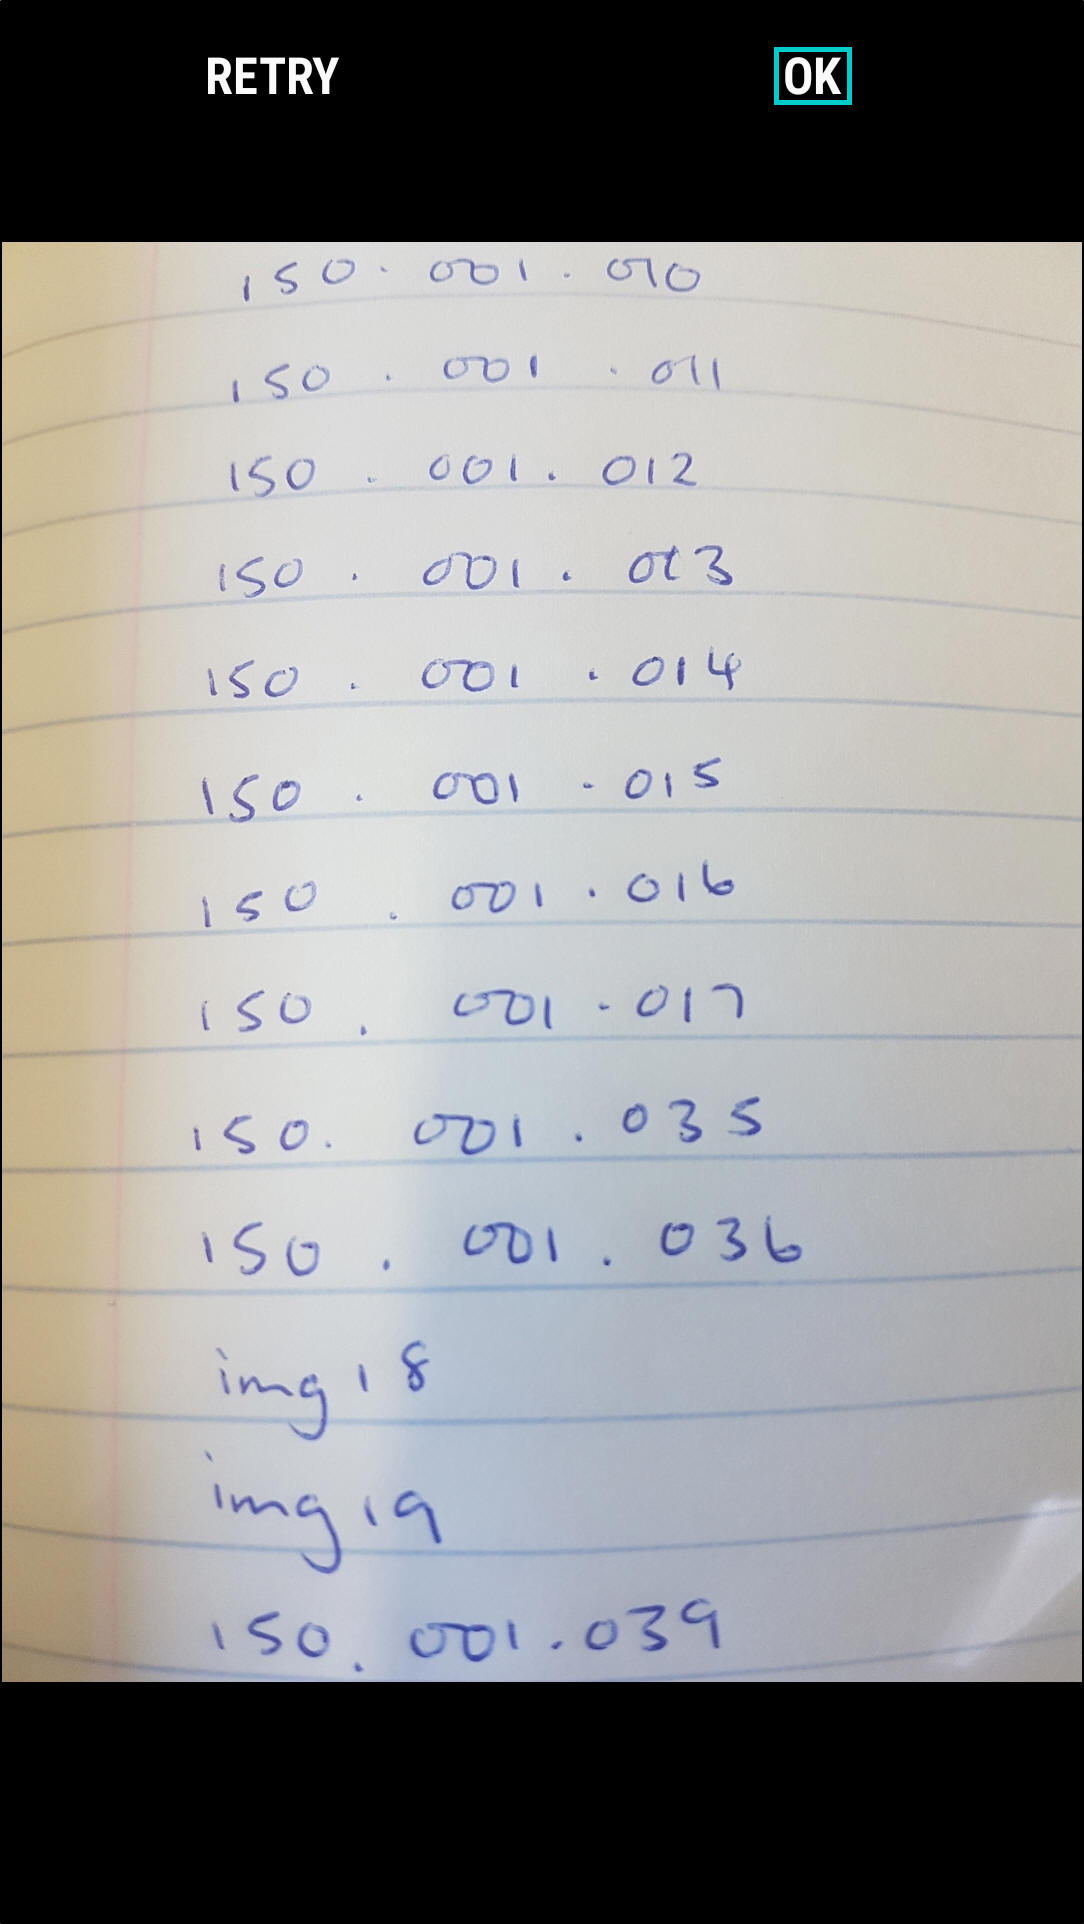 RETRY OK
150.001.010
150.001.011
150.001.012
150.001.013
150.001.014
150.001.015
150.001.016
150.001.017
150.001.035
150.001.036
img 18
img 19
150.001.039